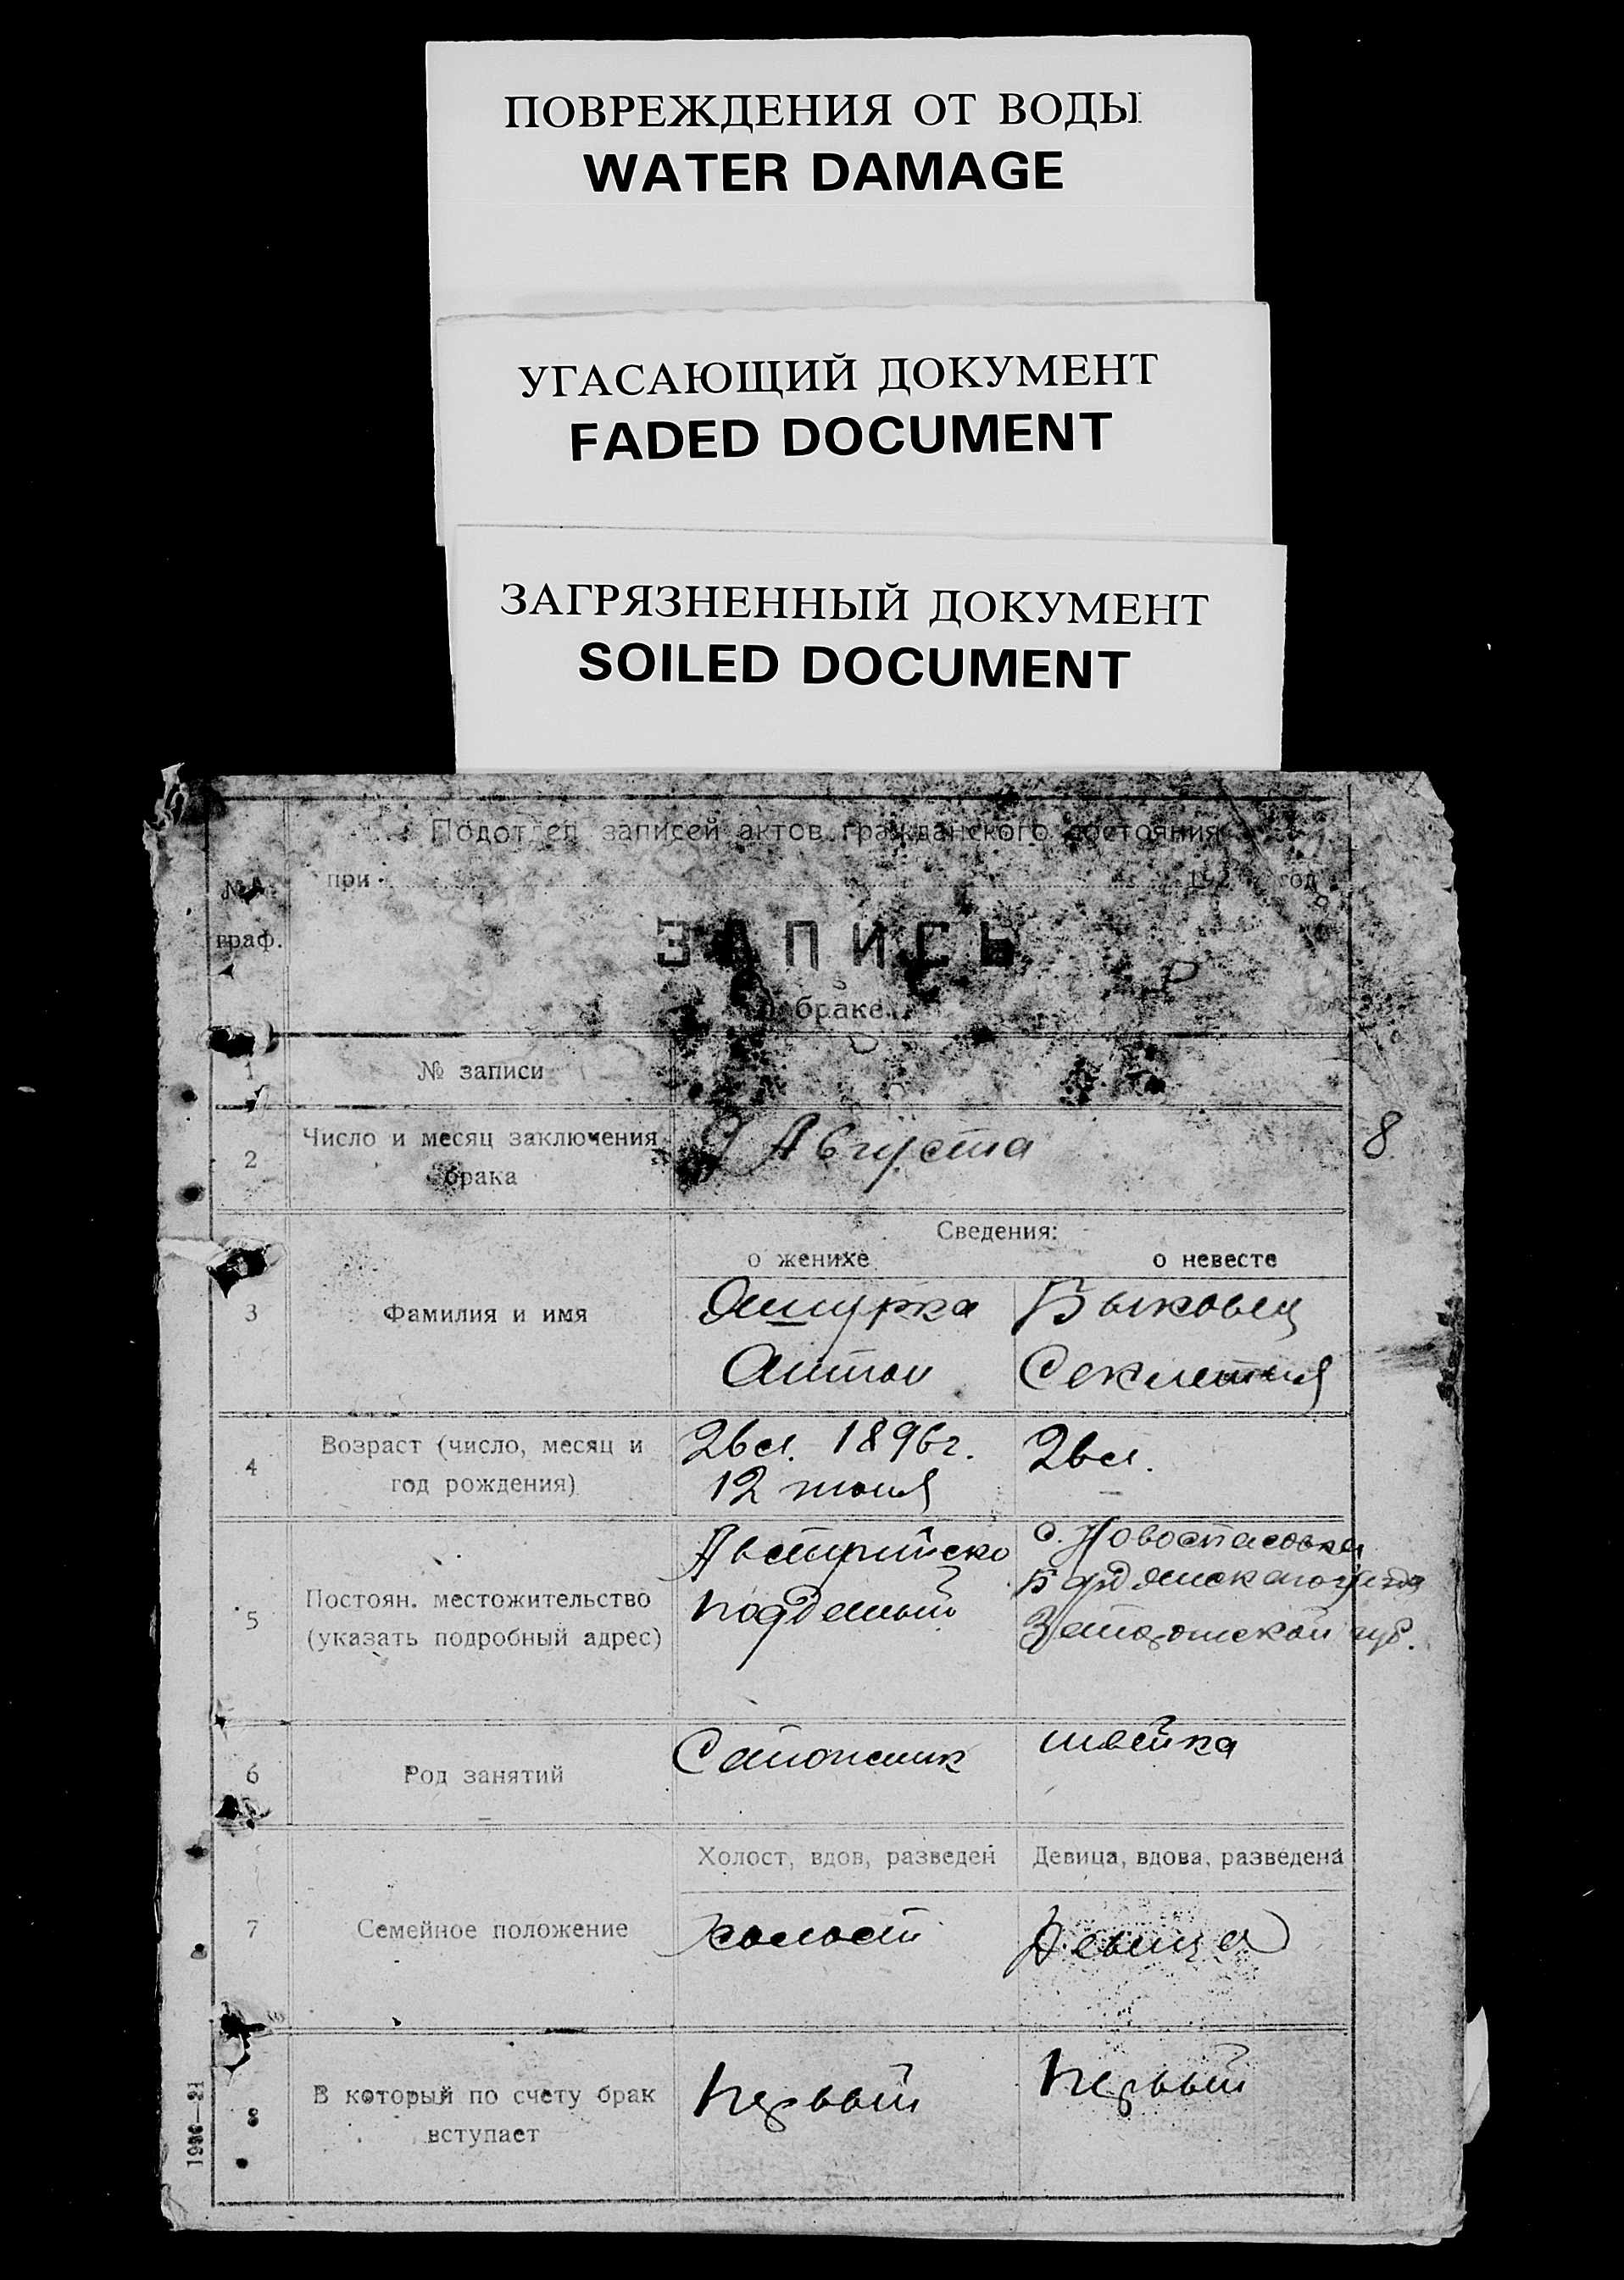 ПОВРЕЖДЕНИЯ ОТ ВОДЫ
WATER DAMAGE
УГАСАЮЩИЙ ДОКУМЕНТ
FADED DOCUMENT
ЗАГРЯЗНЕННЫЙ ДОКУМЕНТ
SOILED DOCUMENT
Подотдел записей актов гражданского состояния
при 192 год
граф.
ЗАПИСЬ
о браке
1 № записи
2 Число и месяц заключения брака
Августа
8
Сведения:
о женихе о невесте
3 Фамилия и имя
Быковец
Антон Секлетия
4 Возраст (число, месяц и год рождения)
26 л. 1896 г. 26 л.
12 июня
5 Постоян. местожительство (указать подробный адрес)
Австрийско
подданый
с. Новоспасовка
Бердянскаго уезда
Запорожской губ.
6 Род занятий
Сапожник швейка
Холост, вдов, разведен Девица, вдова, разведена
7 Семейное положение
холост Девица
8 В который по счету брак вступает
первый первый